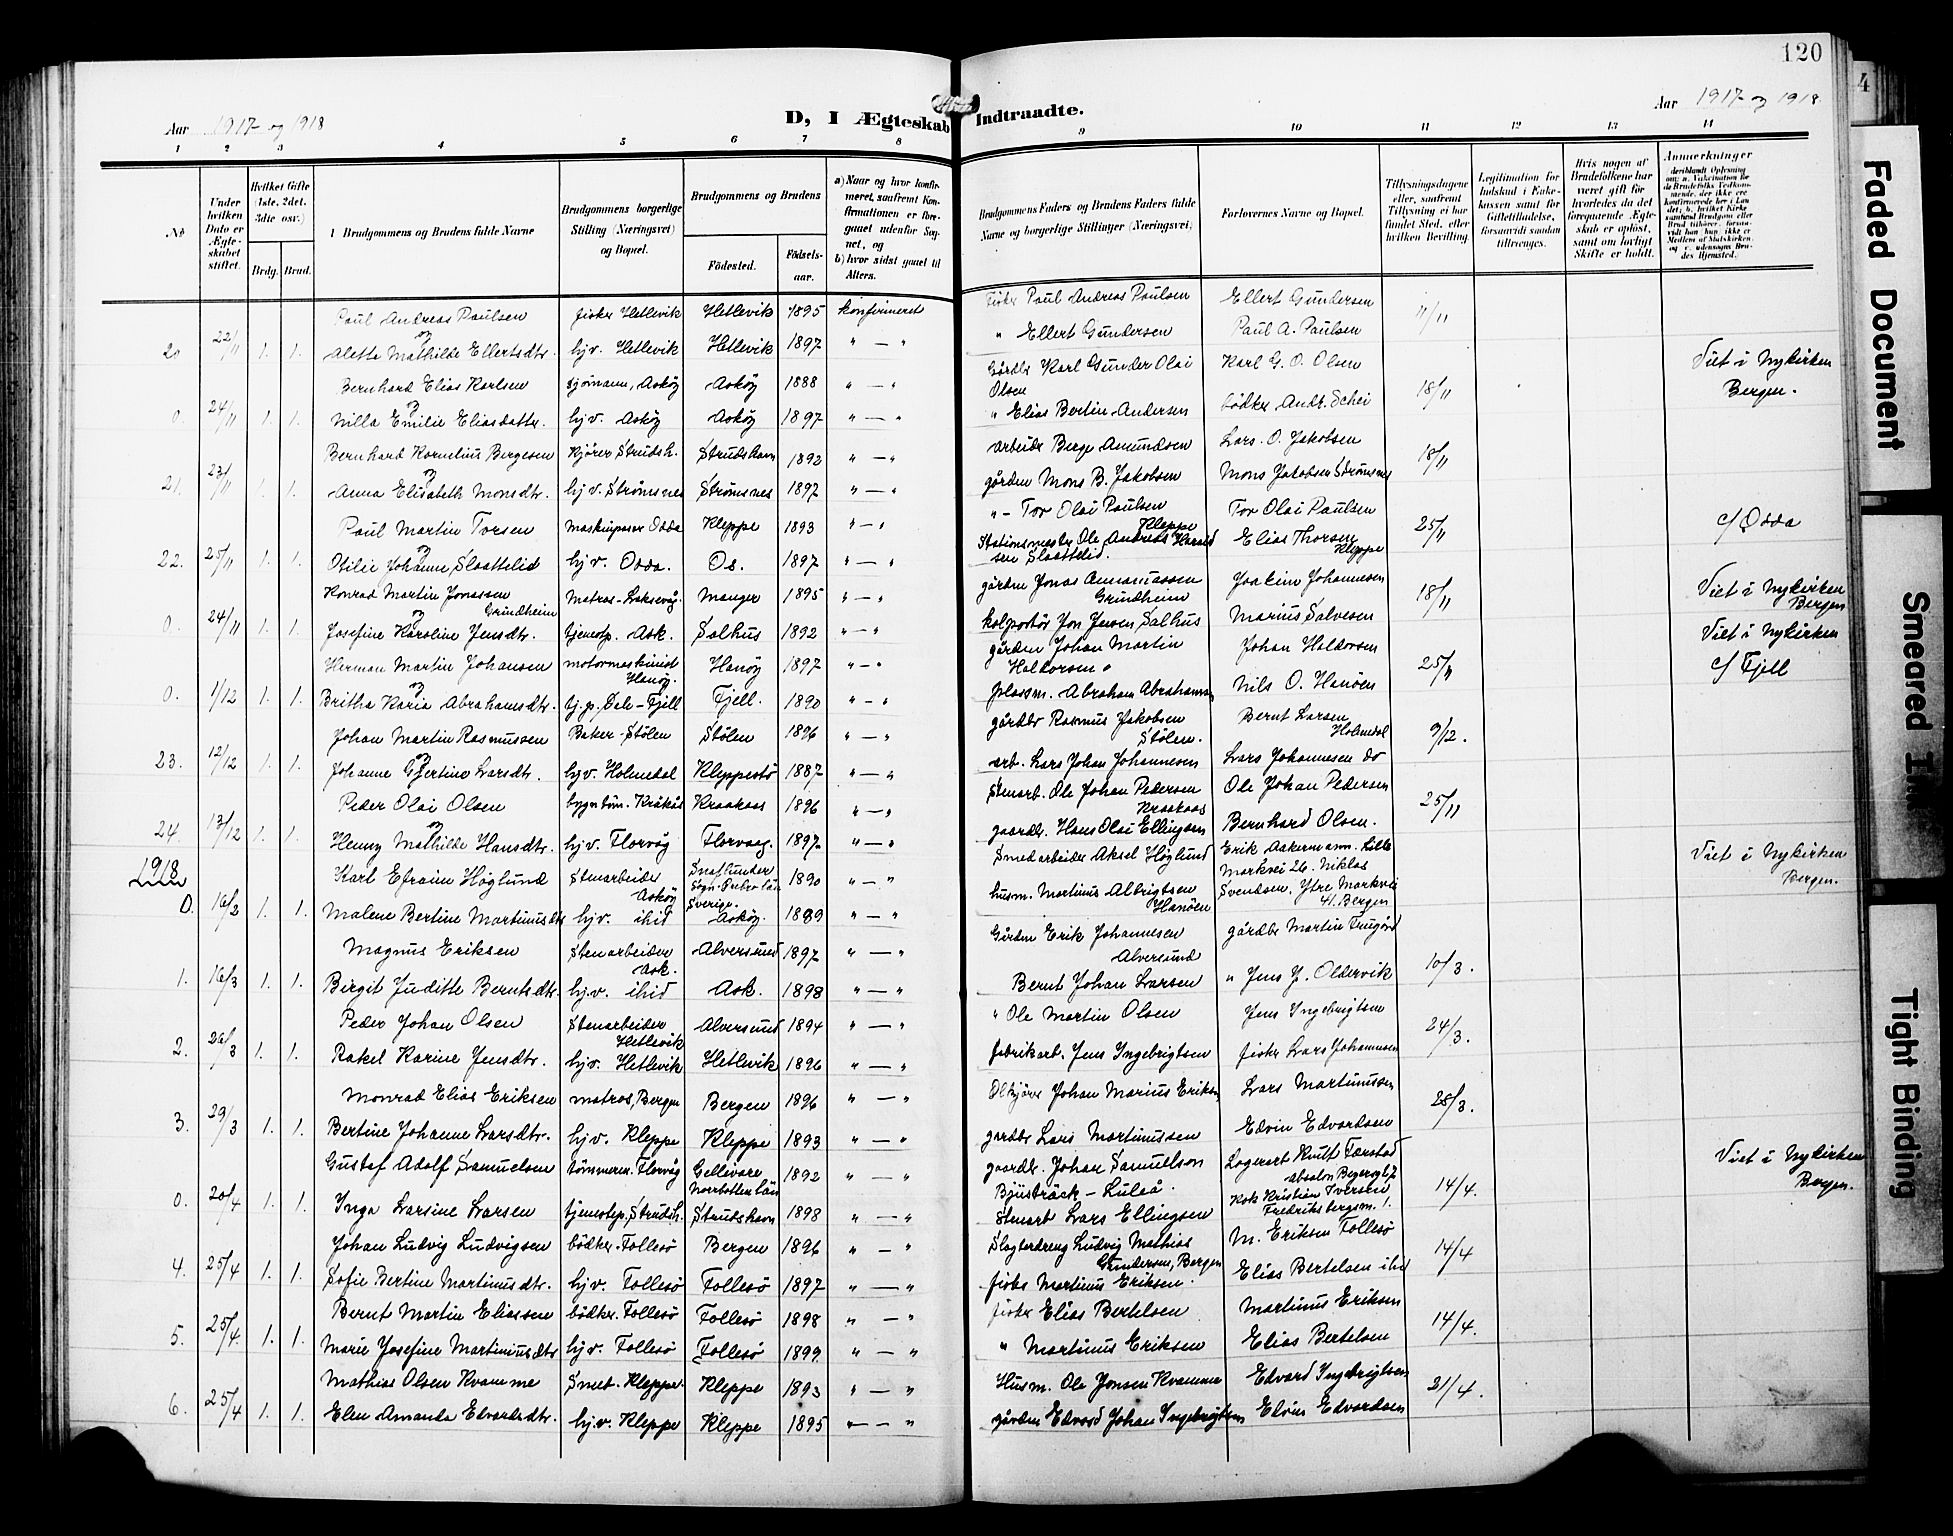 120
Aar 1917 og 1918
D, I Ægteskab Indtraadte.
Aar 1917 og 1918
1 2 3 4 5 6 7 8 9 10 11 12 13 14
No
Under hvilken Dato er Ægteskabet stiftet.
Hvilket Gifte (1ste, 2det, 3die osv.)
Brdg. Brud.
Brudgommens og Brudens fulde Navne
Brudgommens borgerlige Stilling (Næringsvei) og Bopæl.
Brudgommens og Brudens
Fødested.
Fødselsaar.
a) Naar og hvor konfirmeret, saafremt Konfirmationen er foregaaet udenfor Sognet, og
b) hvor sidst gaaet til Alters.
Brudgommens Faders og Brudens Faders fulde Navne og borgerlige Stillinger (Næringsvei)
Forlovernes Navne og Bopæl.
Tillysningsdagene eller, saafremt Tillysning ei har fundet Sted, efter hvilken Bevilling.
Legitimation for Indskud i Enkekassen samt for Giftetilladelse, forsaavidt saadan tiltrænges.
Hvis nogen af Brudefolkene har været gift før hvorledes da det foregaaende Ægteskab er opløst, samt om lovligt Skifte er holdt.
Anmærkninger
Paul Andreas Paulsen fisker Hetlevik Hetlevik 1895 konfirmeret Fisker Paul Andreas Paulsen Ellert Gundersen 11/11
20 22/11 1. 1. og Aletta Mathilde Ellertsdtr. hjv. Hetlevik Hetlevik 1897 " — " " Ellert Gundersen Paul A. Paulsen
Bernhard Elias Karlsen sjømann, Askøy Askøy 1888 " — " Gårdbr Karl Gunder Olai Olsen Karl G. O. Olsen 18/11 Viet i Nykirken Bergen.
0. 24/11 1. 1. og Nilla Emilie Eliasdatter. hjv. Askøy Askøy 1897 " — " " Elias Bertin Andersen bødker Andr. Schei
Bernhard Kornelius Bergesen Kjører Strudsh. Strudshavn 1892 " — " arbeider Berge Amundsen Lars. O. Jakobsen 18/11
21. 23/11 1. 1. og Anna Elisabeth Monsdtr. hjv. Strømsnes Strømsnes 1897 " — " gårdm Mons B. Jakobsen Mons Jakobsen Strømsnes
Paul Martin Torsen Maskinpasser Odda Kleppe 1893 " — " " — Tor Olai Paulsen Kleppe Tor Olai Paulsen 25/11 c/ Odda
22. 25/11 1. 1. og Otilie Johanne Slaattelid hjv. Odda. Os. 1897 " — " Stationsmester Ole Andreas Haraldsen Slaattelid. Elias Thorsen Kleppe
Konrad Martin Jonassen Grindheim Matros - Laksevåg. Manger 1895 " — " gårdm Jonas Grindheim Joakim Johannesen 18/11 Viet i Nykirken Bergen
0. 24/11 1. 1. og Josefine Karoline Jensdtr. tjenestp. Ask. Salhus 1892 " — " kolportør Jon Jensen, Salhus Marius Salvesen Viet i Nykirken
Herman Martin Johansen motormaskinist Hanøy. Hanøy 1897 " — " gårdm Johan Martin Haldorsen Johan Haldorsen 25/11 c/ Fjell
0. 1/12 1. 1. og Britha Karia Abrahamsdtr. tj.p. Dale - Fjell Fjell. 1890 " — " plassm. Abraham Abrahamsen Nils O. Hanøen
Johan Martin Rasmussen Baker - Stølen Stølen 1896 " — " gårdbr Rasmus Jakobsen Stølen. Bernt Larsen Holmedal 9/12.
23. 12/12 1. 1. og Johanne Gjertine Larsdtr. hjv. Holmedal Kleppestø 1887 " — " arb. Lars Johan Johannesen Lars Johannesen do
Peder Olai Olsen Kråkås Kraakaas 1896 " — " Stenarb. Ole Johan Pedersen Kraakaas Ole Johan Pedersen 25/11
24 13/12 1. 1. og Henny Mathilde Hansdtr. hjv. Florvåg Florvaag. 1897 " — " gaardbr. Hans Olai Ellingsen Bernhard Olsen.
1918 Karl Efraim Høglund Stenarbeider Askøy Sverige. 1890 " — " Smedarbeider Aksel Høglund Erik Askermann. Lille Markvei 26. Niklas Viet i Nykirken Bergen.
0. 16/2 1. 1. Malene Bertine Martinusdtr hjv. ibid Askøy. 1889 " — " husm. Martinus Albrigtsen Hanøen Svendsen, Ytre Markvei 41. Bergen
Magnus Eriksen Stenarbeider Ask. Alversund 1897 " — " Gårdm Erik Johannesen Alversund gårdbr Martin 10/3.
1. 16/3 1. 1. Birgit Juditte Berntsdtr. hjv. ibid Ask. 1898 " — " Bernt Johan Larsen " Jens J. Oldervik
Peder Johan Olsen Stenarbeider Hetlevik Alversund 1894 " — " " Ole Martin Olsen Jens Ingebrigtsen 24/3.
2. 26/3 1. 1. Rakel Karine Jensdtr. hjv. Hetlevik Hetlevik 1896 " — " fabrikarb. Jens Ingebrigtsen fisker Lars Johannesen
Monrad Elias Eriksen matros, Bergen Bergen 1896 " — " Johan Marius Eriksen Lars Martinussen 28/3.
3. 29/3 1. 1. Bertine Johanne Larsdtr. hjv. Kleppe Kleppe 1893 " — " gardbr Lars Martinussen Edvin Edvardsen
Gustaf Adolf Samuelsen tømmerm. Florvåg Gellivare Norbotten Län 1892 " — " gaardbr. Johan Samuelson Bjusträck - Luleå. Lagerart Knutt Færstad 14/4. Viet i Nykirken Bergen.
0. 20/4 1. 1. Inga Larsine Larsen tjenestep, Strudsh. Strudshavn 1898 " — " Stenarb Lars Ellingsen Kok Kristian Iversen Fredriksbergsm. 1.
Johan Ludvig Ludvigsen bødker. Follesø Bergen 1896 " — " Slagterdreng Ludvig Mathias Gundersen, Bergen M. Eriksen Follesø 14/4
4. 25/4 1. 1. Sofie Bertine Martinusdtr. hjv. Follesø Follesø 1897 " — " fisker Martinus Eriksen. Elias Bertelsen ibid
Bernt Martin Eliassen bødker. Follesø Follesø 1898 " — " fisker Elias Bertelsen Martinus Eriksen 14/4.
5. 25/4. 1. 1. Marie Josefine Martinusdtr hjv. Follesø Follesø 1899. " — " " Martinus Eriksen Elias Bertelsen
Mathias Olsen Kvamme Smed - Kleppe. Kleppe 1893 " — " Husm. Ole Jonsen Kvamme Edvard Ingebrigtsen 21/4.
6. 25/4 1. 1. Elen Amanda Edvardsdtr. hjv. Kleppe Kleppe 1895 " — " gårdm Edvard Johan Ingebrigtsen Edvin Edvardsen
4
Faded Document
Smeared Ink
Tight Binding